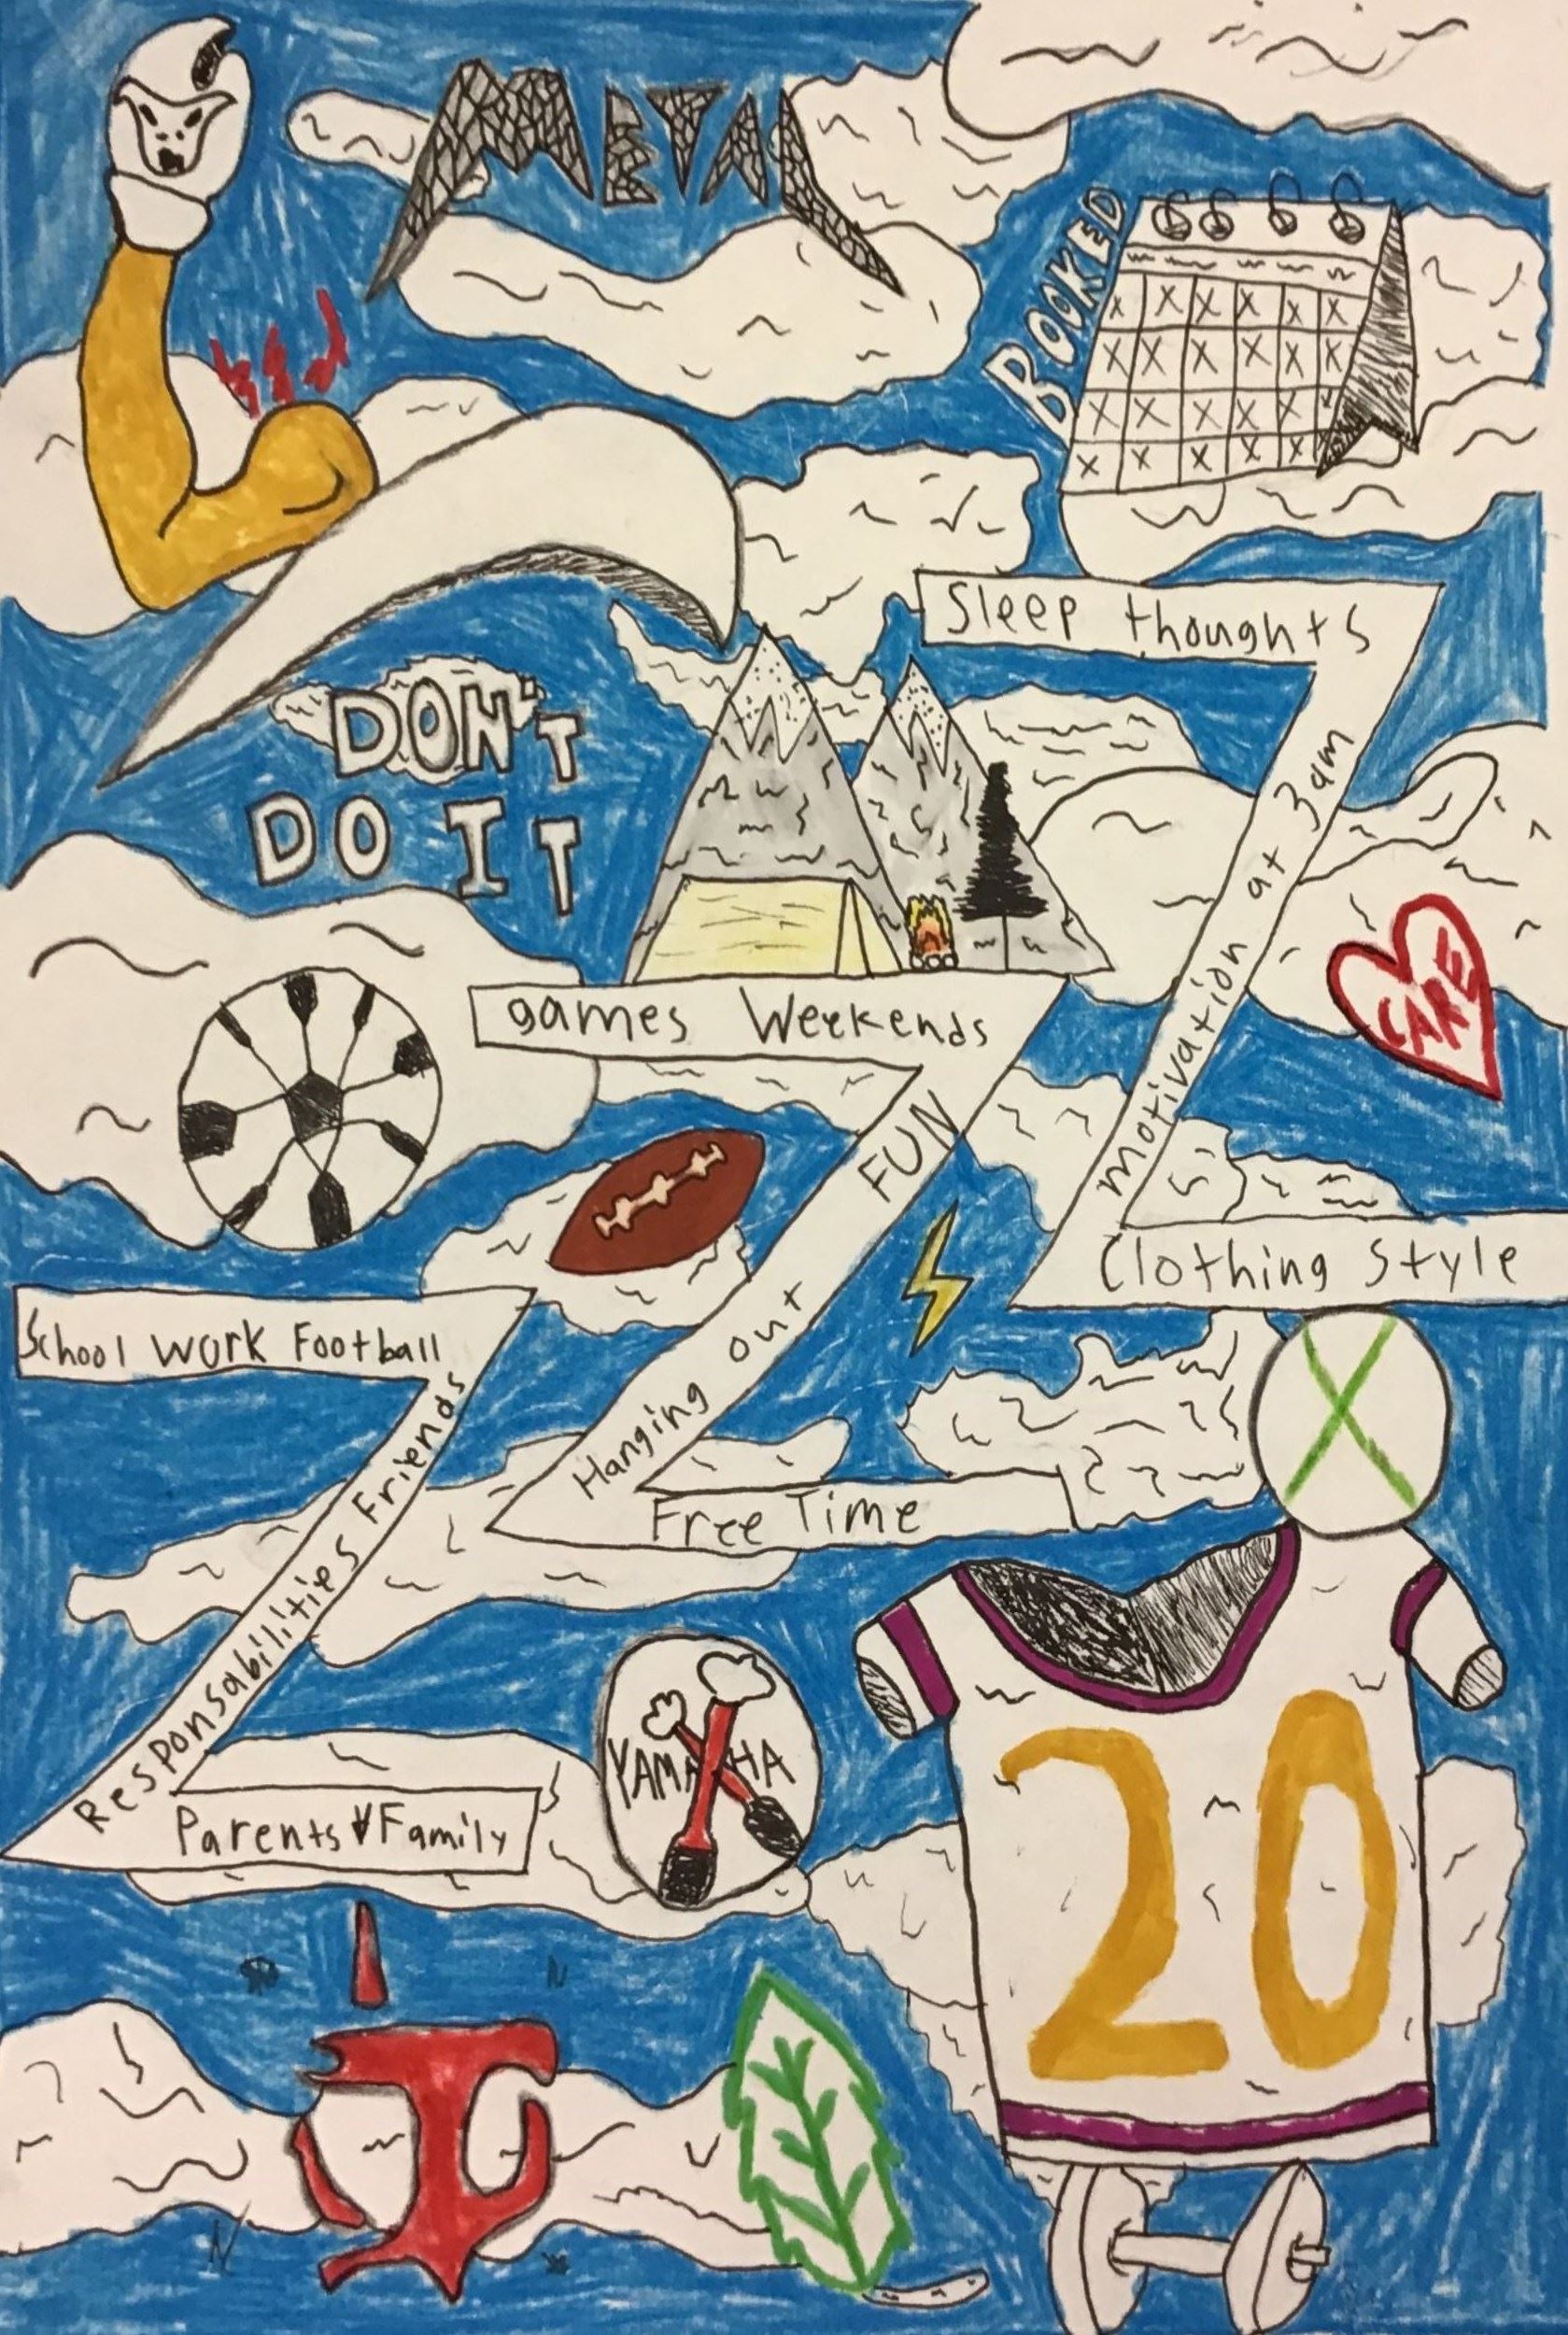 METAL
BOOKED
Sleep thoughts
motivation at 3am
Clothing Style
DON'T
DO IT
CARE
games Weekends
FUN
Hanging out
Free Time
School Work Football
Friends
Responsabilities
Parents & Family
X
YAMAHA
20